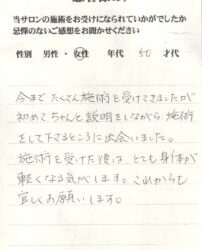 当サロンの施術をお受けになられていかがでしたか
忌憚のないご感想をお聞かせください
性別 男性・女性 年代 50 才代
今まで たくさん施術を受けてきましたが
初めて ちゃんと説明をしながら、施術
をして下さるところに出会いました。
施術を受けた後は、とても身体が
軽くなる気がします。これからも
宜しくお願いします。